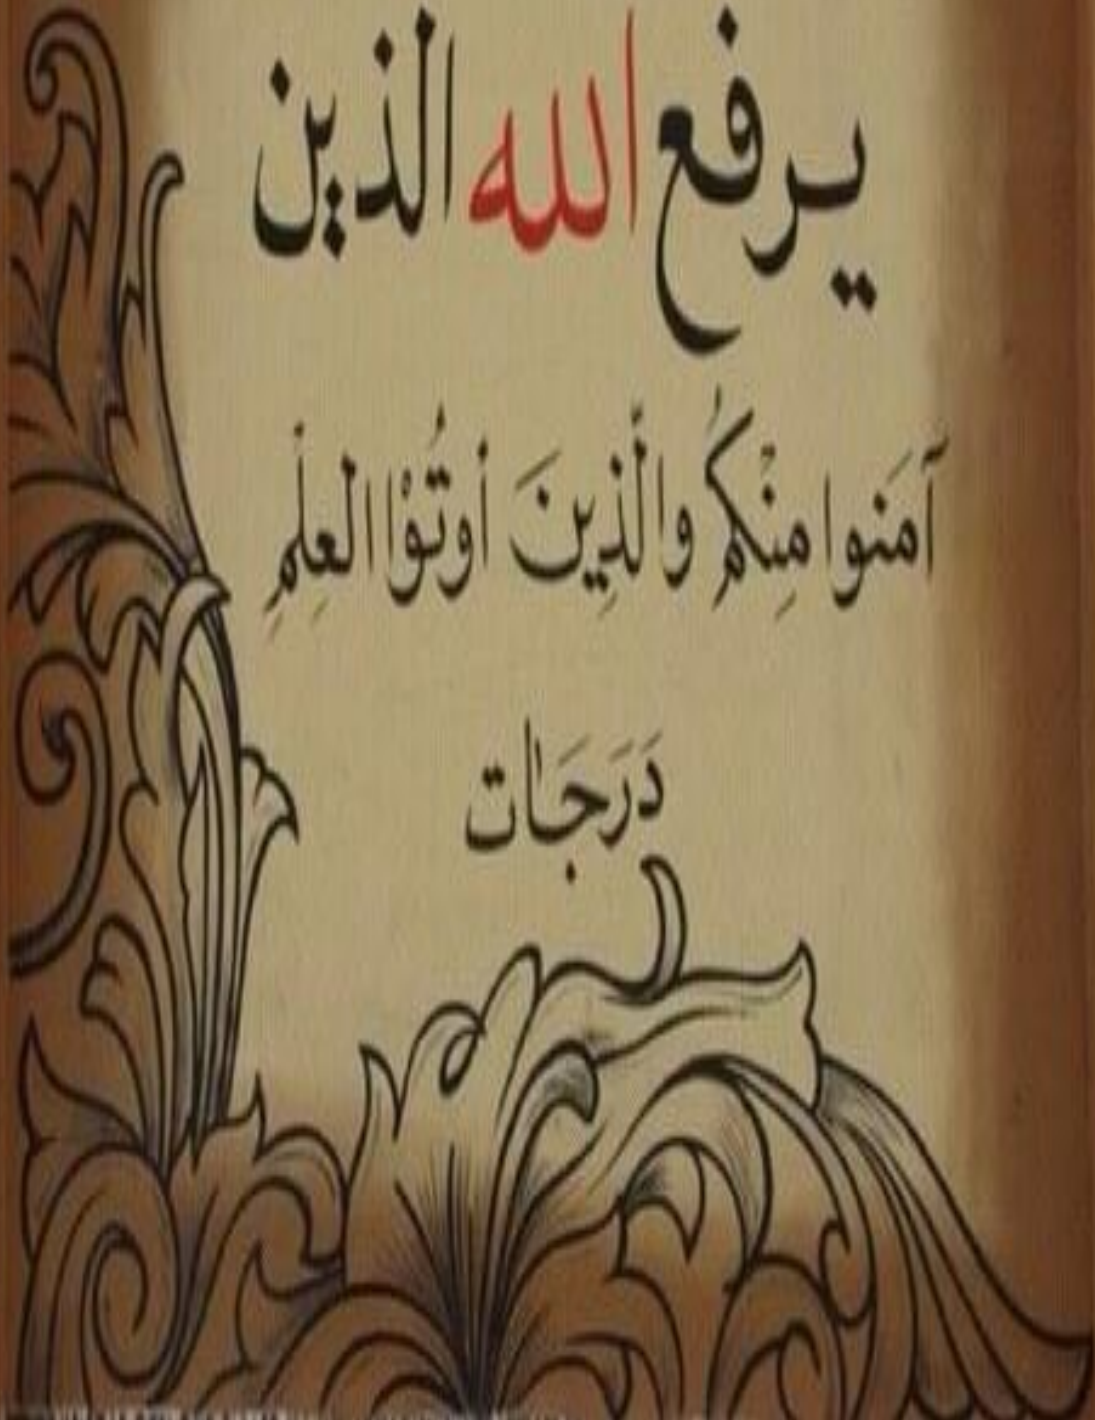 يرفع الله الذين
آمَنوا مِنْكُم والَّذِينَ أوتُوْا العِلْمِ
دَرَجَات